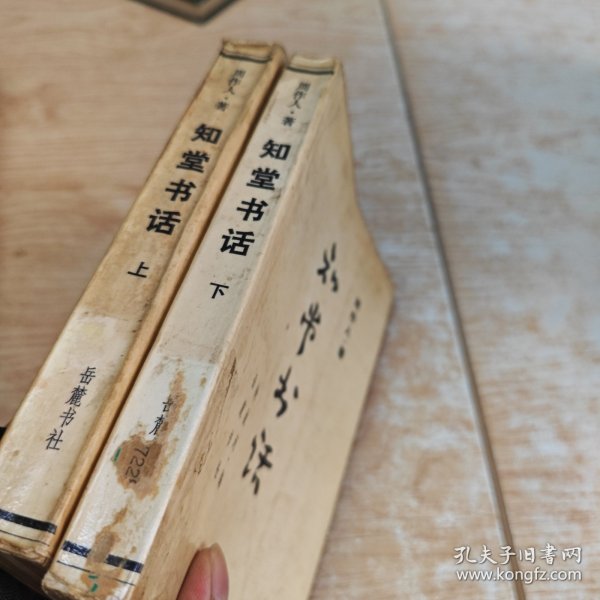 周作人·著
知堂书话
上
岳麓书社
周作人·著
知堂书话
下
岳麓
722
知堂书话
孔夫子旧书网
www.kongfz.com